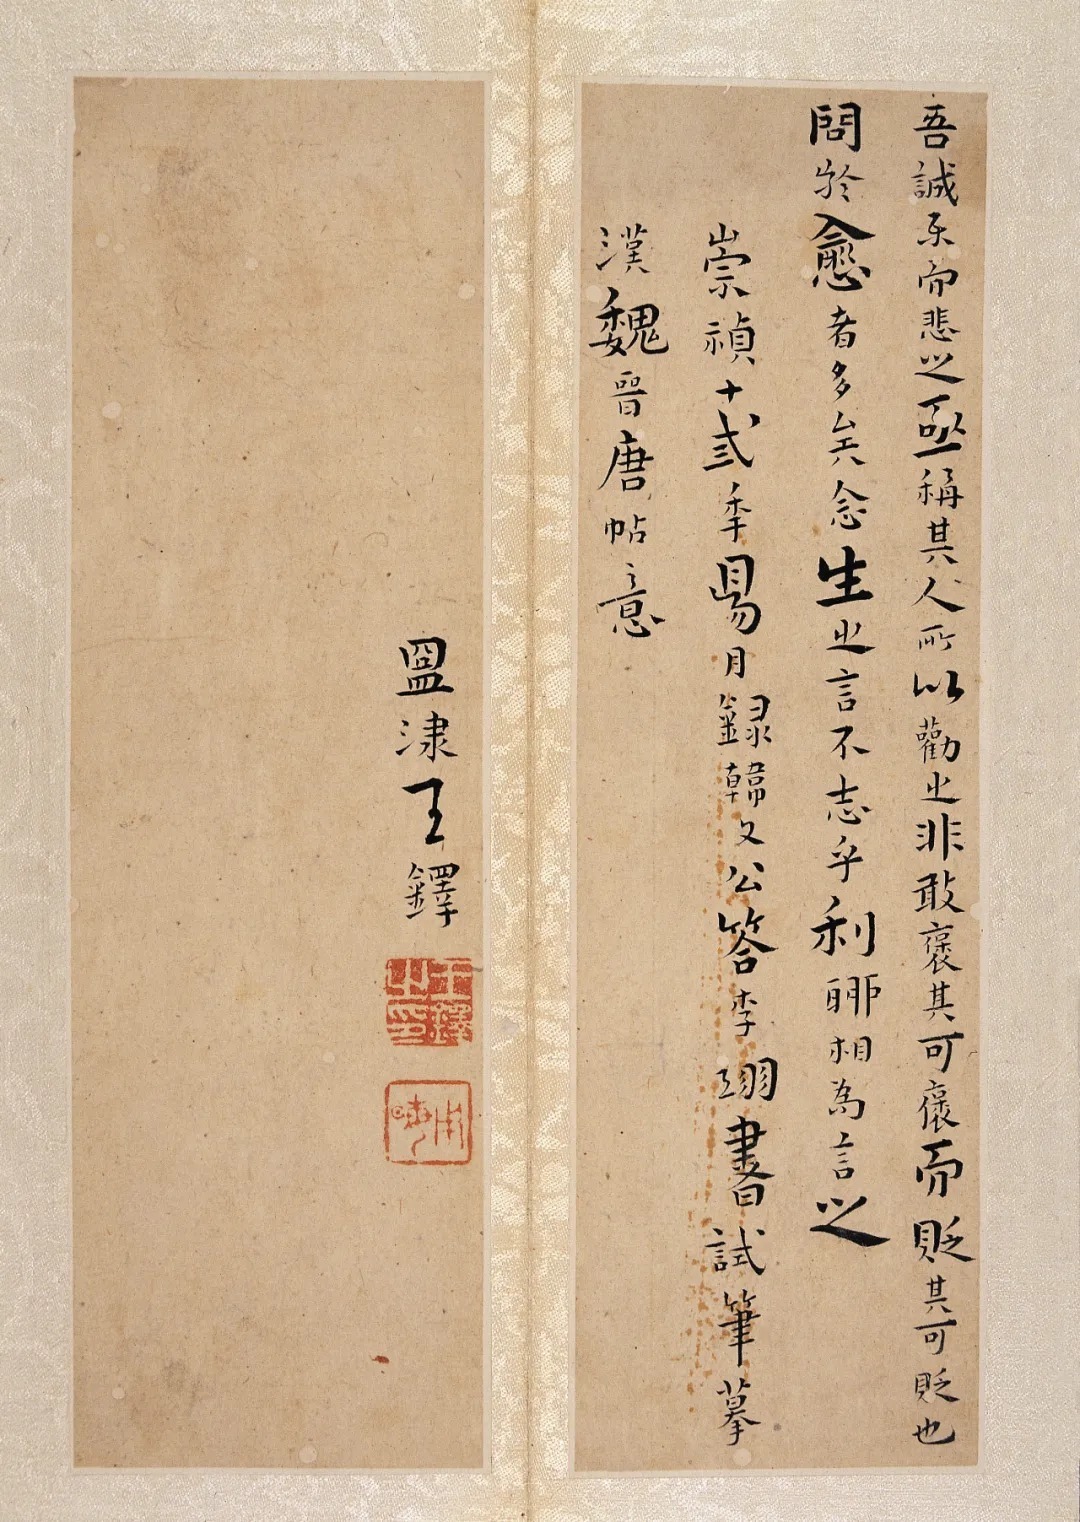 吾誠樂而悲之亟稱其人所以勸之非敢褒其可褒而貶其可貶也
問於愈者多矣念生之言不志乎利聊相為言之
崇禎十弎季昜月錄韓文公答李翊書試筆摹
漢魏晉唐帖意
盟津王鐸
王鐸之印